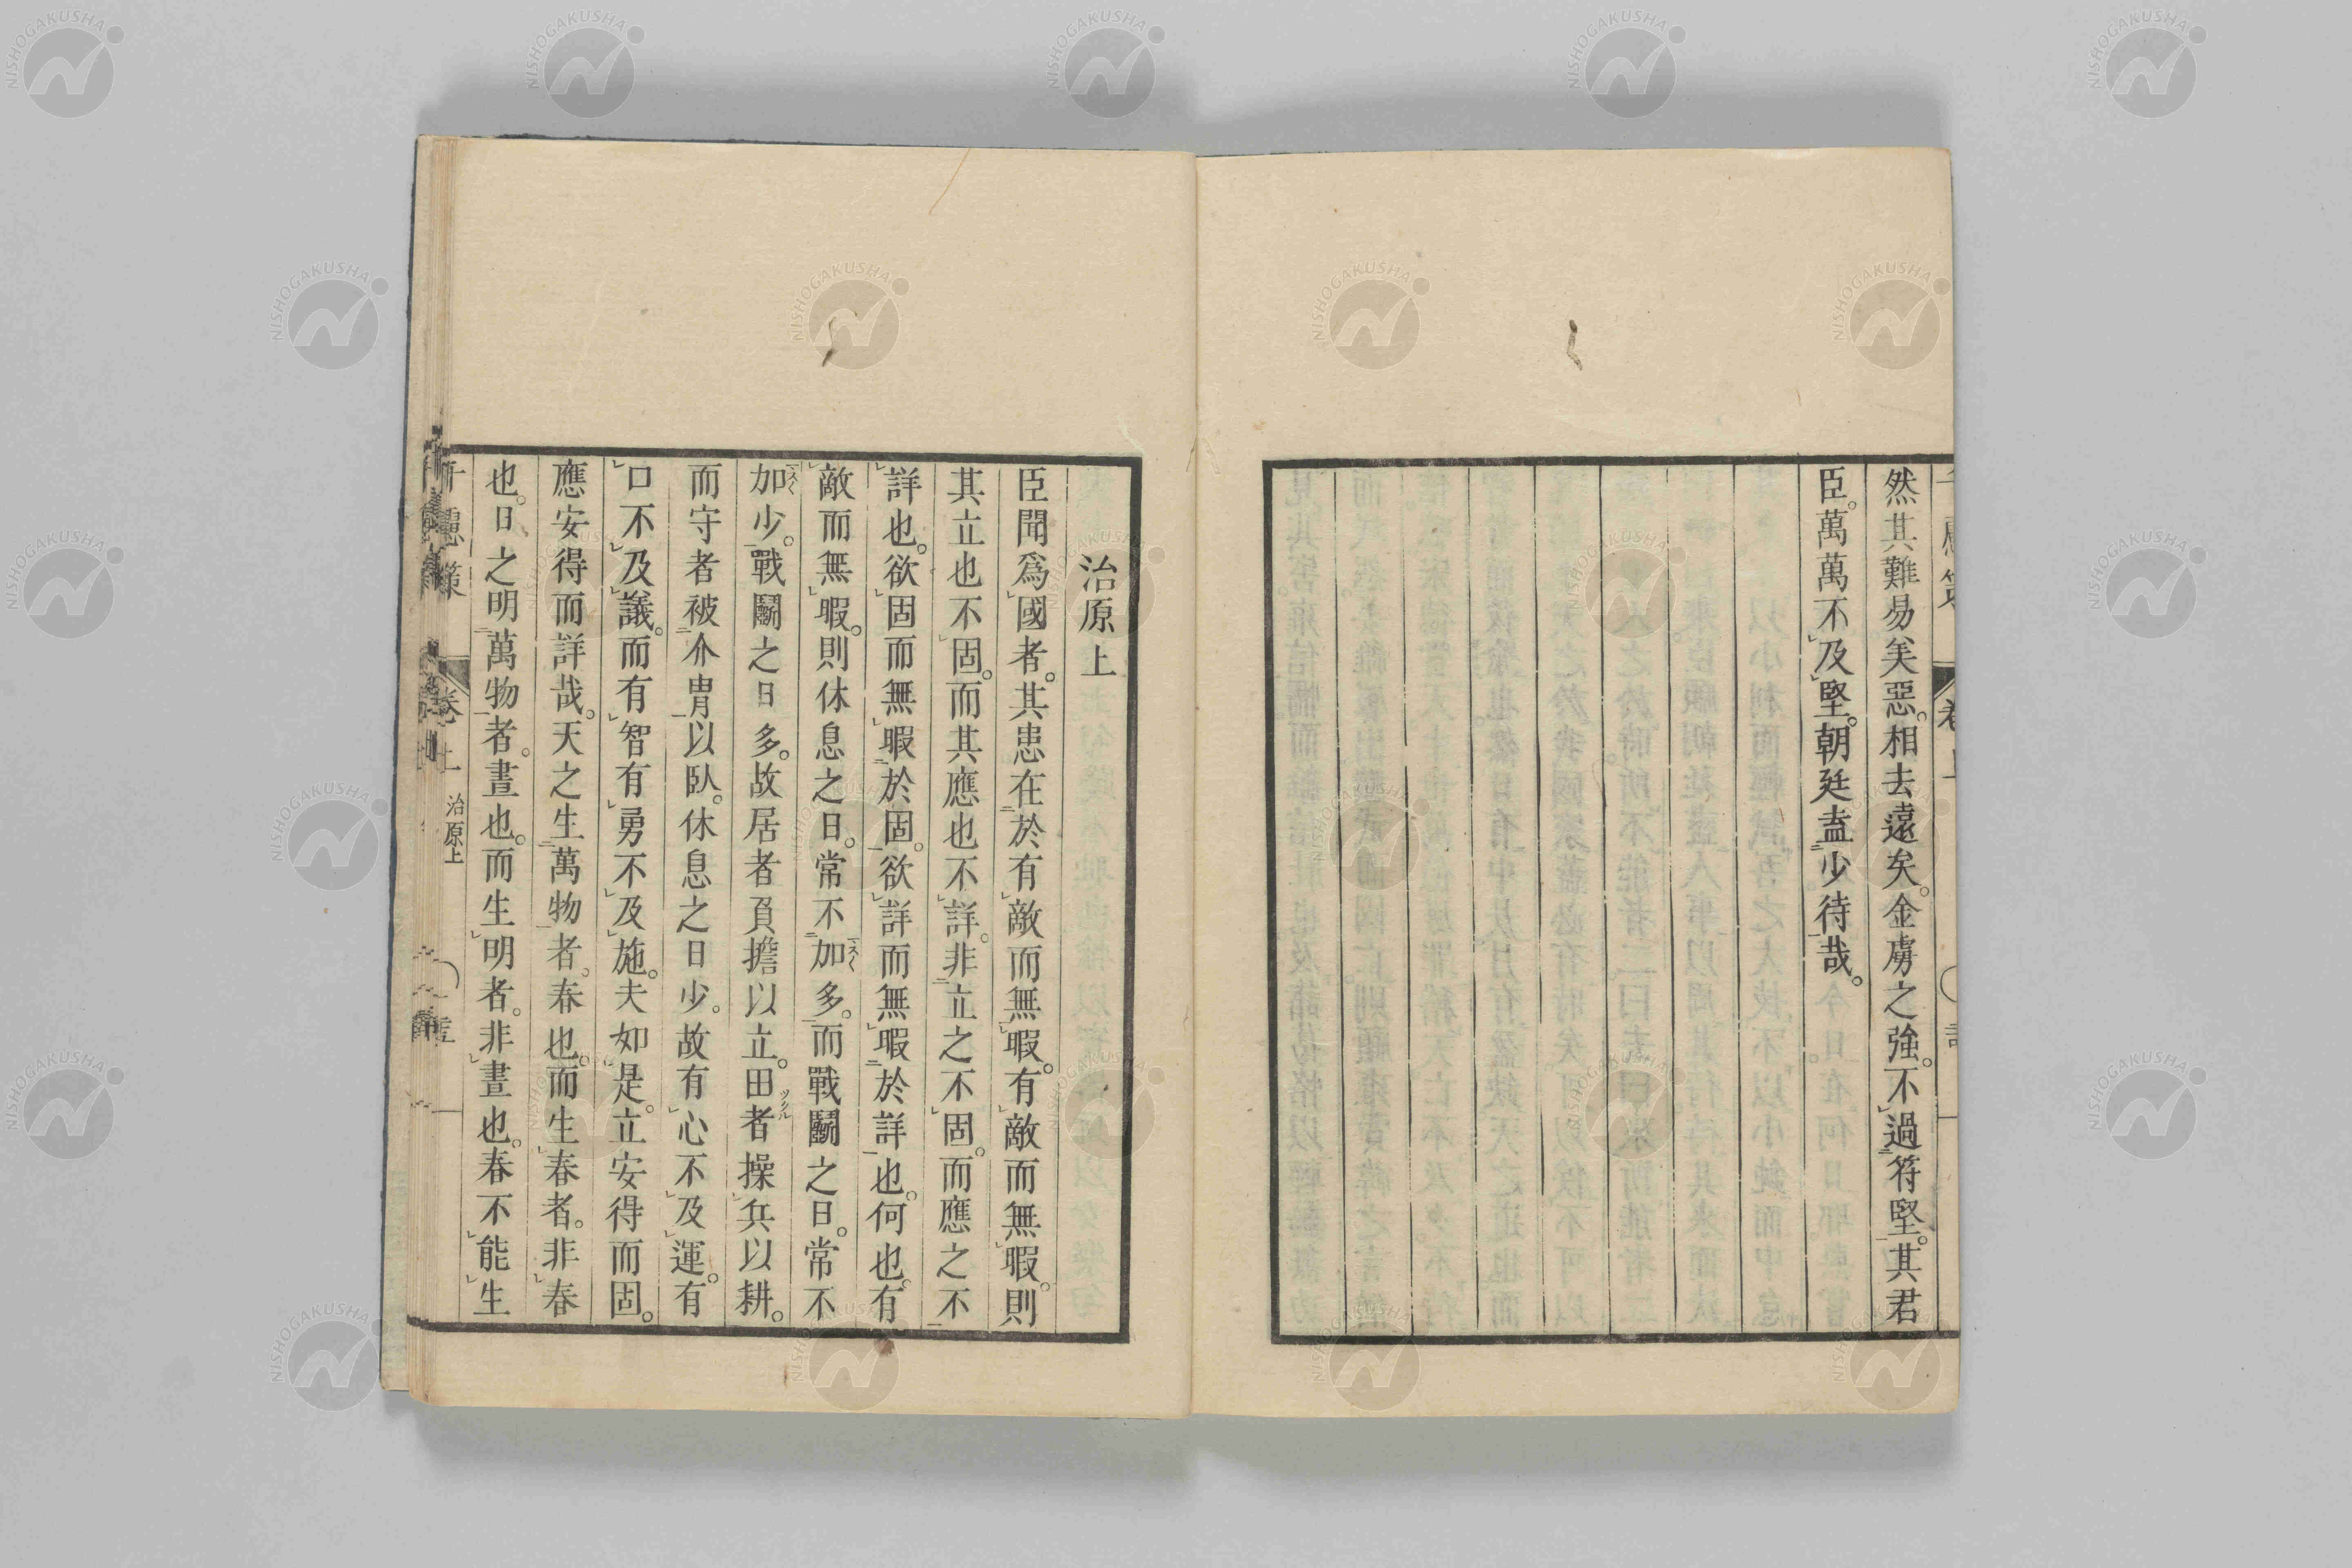 然其難易美惡。相去遠矣。金虜之強。不過苻堅。其君
臣。萬萬不及堅。朝廷盍少待哉。
治原上
臣聞爲國者。其患在於有敵而無暇。有敵而無暇。則
其立也不固。而其應也不詳。非立之不固。而應之不
詳也。欲固而無暇於固。欲詳而無暇於詳也。何也。有
敵而無暇。則休息之日。常不加多。而戰鬭之日。常不
加少。戰鬭之日多。故居者負擔以立。田者操兵以耕。
而守者被介冑以臥。休息之日少。故有心不及運。有
口不及議。而有智有勇不及施。夫如是。立安得而固。
應安得而詳哉。天之生萬物者。春也。而生春者。非春
也。日之明萬物者。晝也。而生明者。非晝也。春不能生
千慮策
卷上
治原上
NISHOGAKUSHA